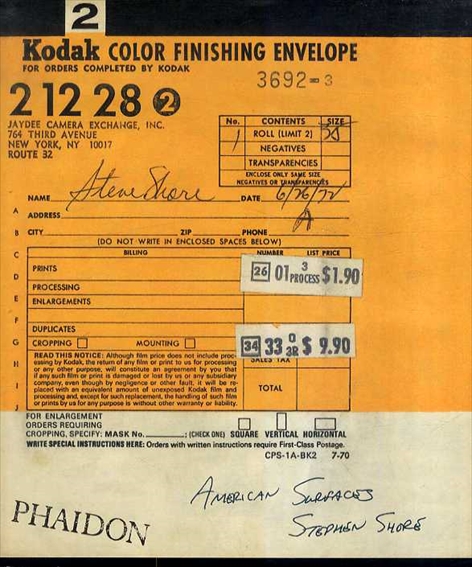 2
Kodak COLOR FINISHING ENVELOPE
FOR ORDERS COMPLETED BY KODAK
3692-3
2 12 28 2
JAYDEE CAMERA EXCHANGE, INC.
764 THIRD AVENUE
NEW YORK, NY 10017
ROUTE 32
No. CONTENTS SIZE
1 ROLL (LIMIT 2) 35
NEGATIVES
TRANSPARENCIES
ENCLOSE ONLY SAME SIZE
NEGATIVES OR TRANSPARENCIES
NAME Steve Shore DATE 6/26/72
A ADDRESS A
B CITY ZIP PHONE
(DO NOT WRITE IN ENCLOSED SPACES BELOW)
C BILLING NUMBER LIST PRICE
D PRINTS 26 01 3 PROCESS $1.90
PROCESSING
E ENLARGEMENTS
F
G DUPLICATES
H CROPPING MOUNTING 34 33 0 3R $ 9.90
SALES TAX
READ THIS NOTICE: Although film price does not include proc-
essing by Kodak, the return of any film or print to us for processing
or any other purpose, will constitute an agreement by you that
if any such film or print is damaged or lost by us or any subsidiary
company, even though by negligence or other fault, it will be re-
placed with an equivalent amount of unexposed Kodak film and
processing and, except for such replacement, the handling of such film
or prints by us for any purpose is without other warranty or liability.
I
J
TOTAL
FOR ENLARGEMENT
ORDERS REQUIRING
CROPPING, SPECIFY: MASK No. ; (CHECK ONE) SQUARE VERTICAL HORIZONTAL
WRITE SPECIAL INSTRUCTIONS HERE: Orders with written instructions require First-Class Postage.
CPS-1A-BK2 7-70
AMERICAN SURFACES
STEPHEN SHORE
PHAIDON